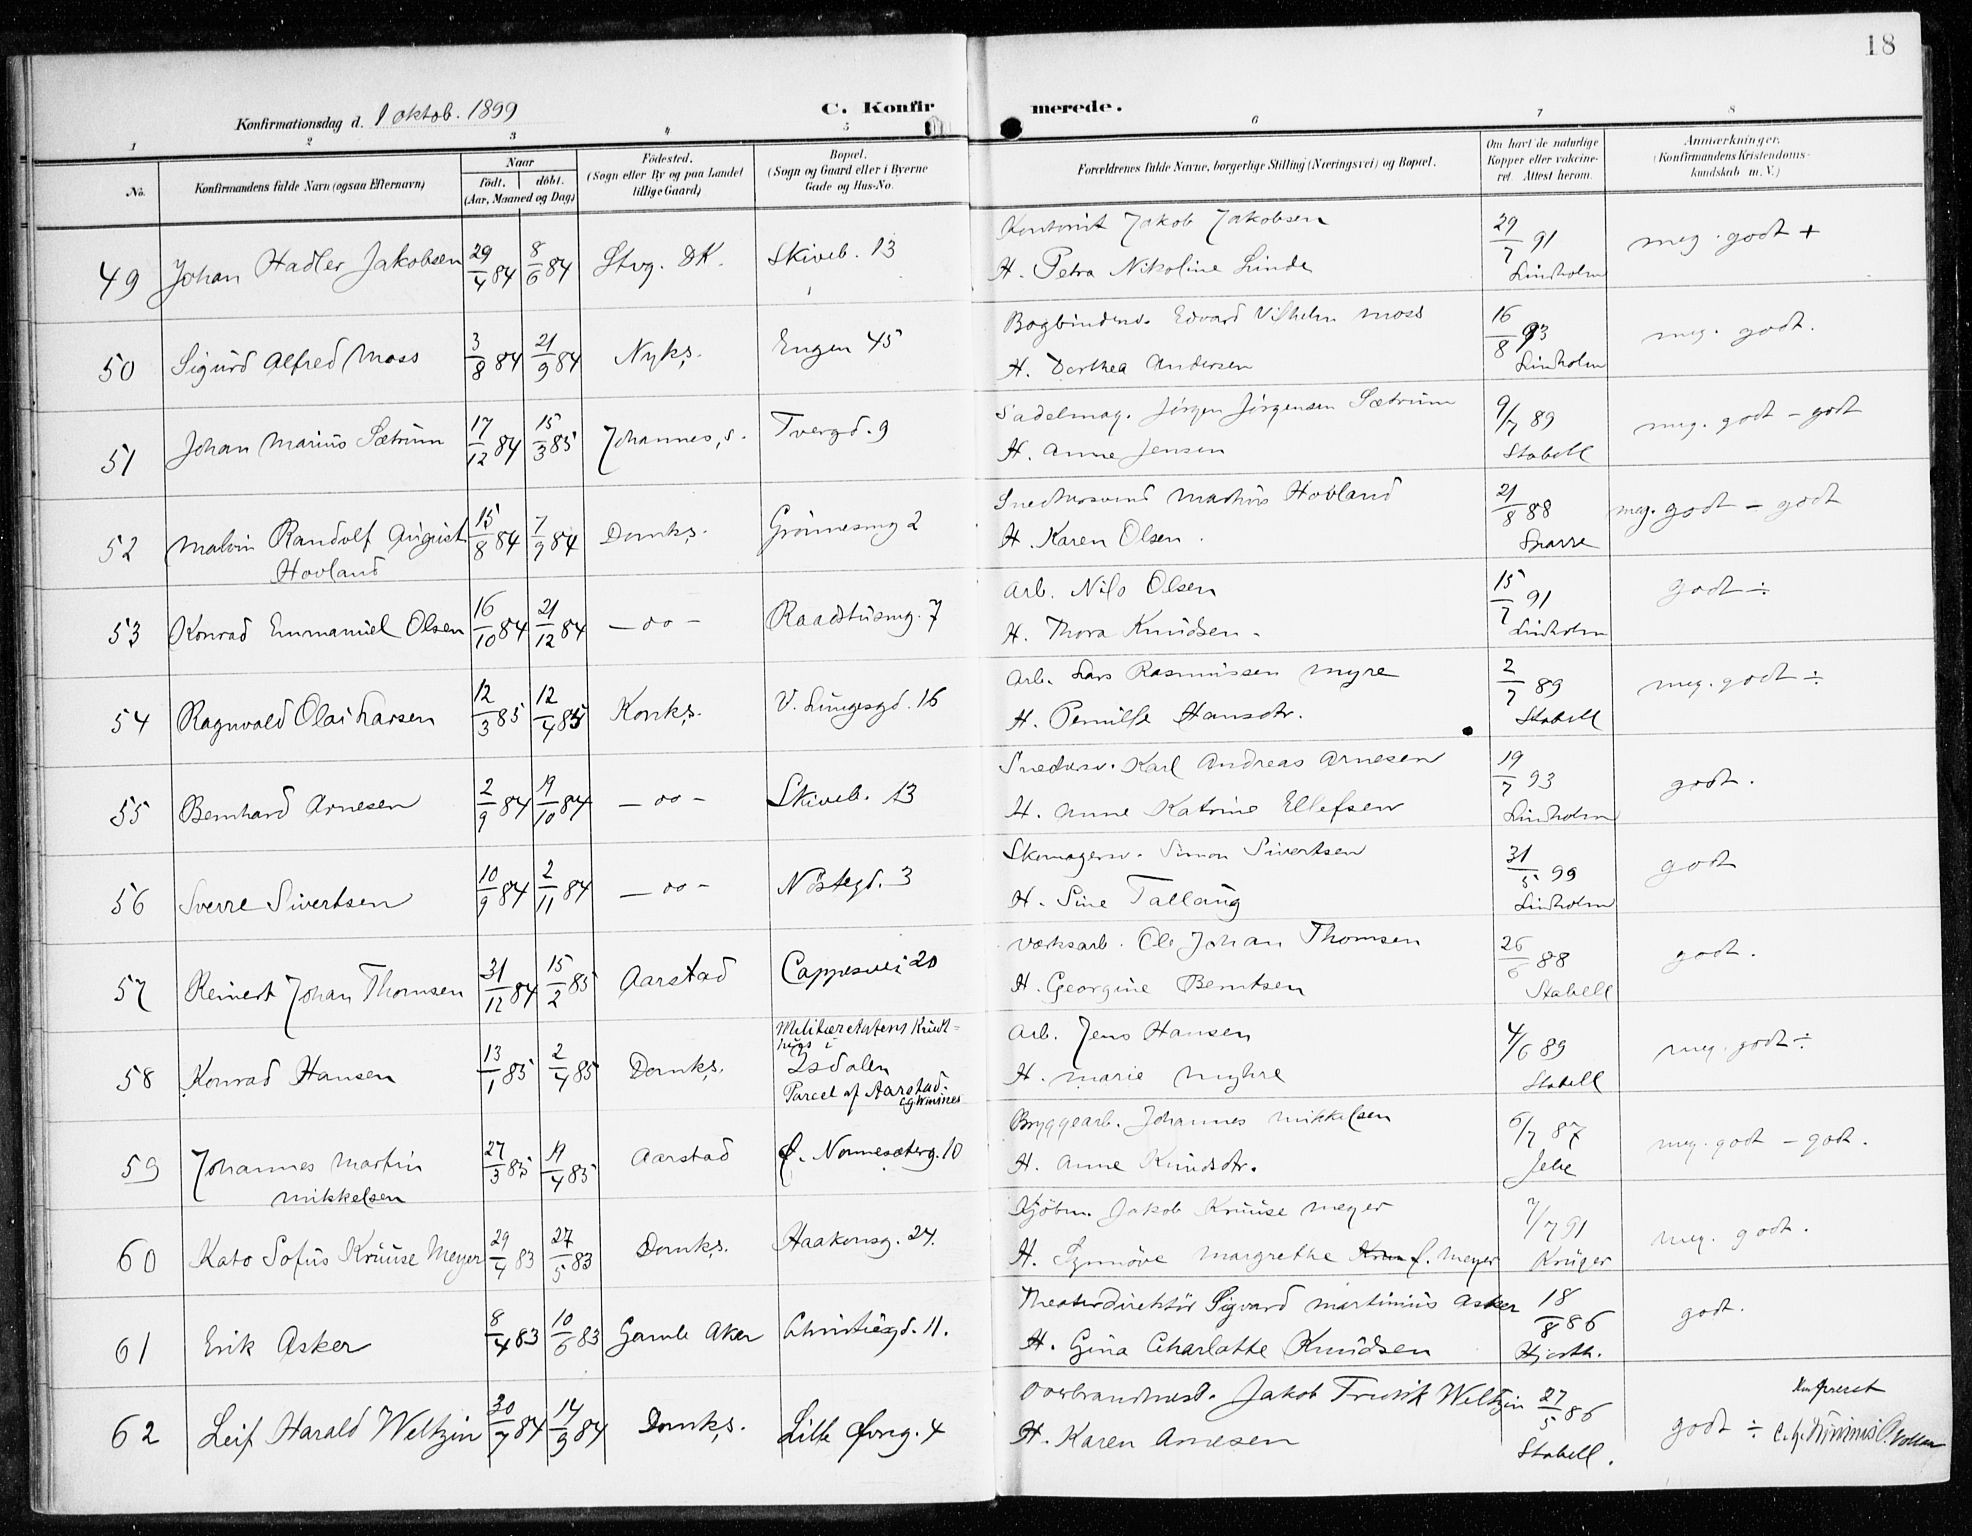 18
Konfirmationsdag d. 1 oktob. 1899
C. Konfirmerede.
1 2 3 4 5 6 7 8
No.
Konfirmandens fulde Navn (ogsaa Efternavn)
Naar
födt. döbt.
(Aar, Maaned og Dag)
Födested.
(Sogn eller By og paa Landet
tillige Gaard)
Bopæl.
(Sogn og Gaard eller i Byerne
Gade og Hus-No.
Forældrenes fulde Navne, borgerlige Stilling (Næringsvei) og Bopæl.
Om havt de naturlige
Kopper eller vakcine-
ret. Attest herom.
Anmærkninger.
(Konfirmandens Kristendoms-
kundskab m. V.)
49 Johan Hadler Jakobsen 29/4 84 8/6 84 Stvg. DK. Skiveb. 13
Kontorist Jakob Jakobsen
H. Petra Nikoline Linde
29/7 91 Lindholm
meg. godt +
50 Sigurd Alfred Moss 3/8 84 21/9 84 Nyks. Engen 45
Bogbindersv. Edvard Vilhelm Moss
H. Dorthea Andersen
16/8 93 Lindholm
meg. godt.
51 Johan Marius Sætrum 17/12 84 15/3 85 Johannes,s. Tvergd. 9
Sadelmag. Jörgen Jörgensen Sætrum
H. Anne Jensen
9/7 89 Stabell
meg. godt - godt
52 Malvin Randolf August
Hovland
15/8 84 7/9 84 Domks. 2
Snedkersvend Hovland
H. Karen Olsen.
21/8 88
meg. godt - godt
53 Konrad Emmanuel Olsen 16/10 84 21/12 84 — oo — Raadstusmg. 7
Arb. Nils Olsen
H. Thora Knudsen.
15/7 91 Lindholm
godt ÷
54 Ragnvald Olai Larsen 12/3 85 12/4 85 Korsks. V. Lungegd. 16
Arb. Lars Rasmussen Myre
H. Pernille Hansdtr.
2/7 89 Stabell
meg. godt ÷
55 Bernhard Arnesen 2/9 84 19/10 84 — oo — Skiveb. 13
Snedkersv. Karl Andreas Arnesen
H. Anne Katrine Ellefsen
19/7 93 Lindholm
godt.
56 Sverre Sivertsen 10/9 84 2/11 84 — oo — Nöstegd. 3
Skomagersv. Simon Sivertsen
H. Sine Tallaug
31/5 99 Lindholm
godt
57 Reinert Johan Thomsen 31/12 84 15/2 85 Aarstad Cappesvei 20
Værksarb. Ole Johan Thomsen
H. Georgine Berntsen
26/6 88 Stabell
godt.
58 Konrad Hansen 13/1 85 2/4 85 Domks.
Militæretatens Krudt-
hugs i
Isdalen
Parcel af Aarstad.
Arb. Jens Hansen
H. Marie Myhre
4/6 89 Stabell
meg. godt ÷
59 Johannes Martin
Mikkelsen
27/3 85 19/4 85 Aarstad Ø. Nonnesæterg. 10
Bryggearb. Johannes Mikkelsen
H. Anne Knudsdtr.
6/7 87
meg. godt - godt.
60 Kato Sofus Kruuse Meyer 29/4 83 27/5 83 Domks. Haakonsg. 24.
Kjöbm. Jakob Kruuse Meyer
H. Synnöve Margrethe f. Meyer
7/7 91 Krüger
meg. godt.
61 Erik Asker 8/4 83 10/6 83 Gamle Aker Christiesgd. 11.
Theaterdirektör Sigvard Martinius Asker
H. Gina Charlotte Knudsen
18/8 86
godt.
62 Leif Harald Weltzin 30/7 84 14/9 84 Domks. Lille Øvreg. 4
Overbrandmest. Jakob Fredrik Weltzin
H. Karen Arnesen
27/5 86 Stabell.
godt ÷
Konfereret